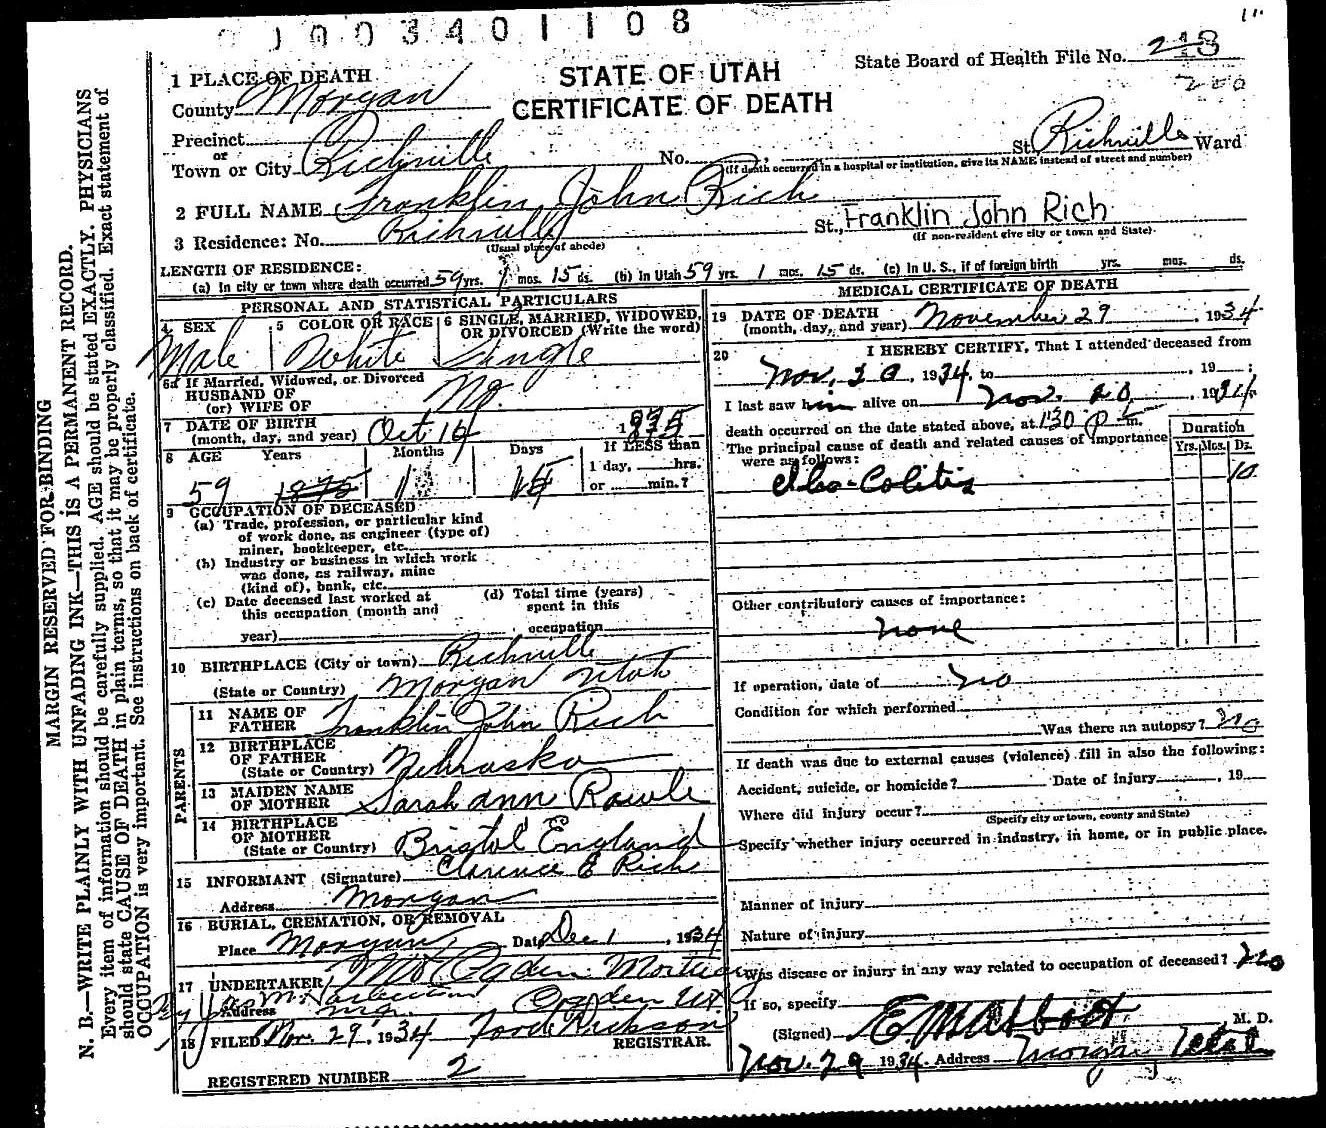 0003401108
State Board of Health File No. 213
200
STATE OF UTAH
CERTIFICATE OF DEATH
1 PLACE OF DEATH
County Morgan
Precinct
or
Town or City Richville No. St. Richville Ward
(If death occurred in a hospital or institution, give its NAME instead of street and number)
2 FULL NAME Franklin John Rich
3 Residence: No. Richville St., Franklin John Rich
(Usual place of abode) (If non-resident give city or town and State)
LENGTH OF RESIDENCE:
(a) In city or town where death occurred 59 yrs. 1 mos. 15 ds. (b) In Utah 59 yrs. 1 mos. 15 ds. (c) In U. S., if of foreign birth yrs. mos. ds.
PERSONAL AND STATISTICAL PARTICULARS
4 SEX 5 COLOR OR RACE 6 SINGLE, MARRIED, WIDOWED,
OR DIVORCED (Write the word)
Male White Single
6a If Married, Widowed, or Divorced
HUSBAND OF
(or) WIFE OF No.
7 DATE OF BIRTH
(month, day, and year) Oct 14 1875
8 AGE Years Months Days If LESS than
1 day, hrs.
or min.?
59 1875 1 15
9 OCCUPATION OF DECEASED
(a) Trade, profession, or particular kind
of work done, as engineer (type of)
miner, bookkeeper, etc.
(b) Industry or business in which work
was done, as railway, mine
(kind of), bank, etc.
(c) Date deceased last worked at
this occupation (month and
year)
(d) Total time (years)
spent in this
occupation
10 BIRTHPLACE (City or town) Richville
(State or Country) Morgan Utah
PARENTS
11 NAME OF
FATHER Franklin John Rich
12 BIRTHPLACE
OF FATHER
(State or Country) Nebraska
13 MAIDEN NAME
OF MOTHER Sarah ann Rawle
14 BIRTHPLACE
OF MOTHER
(State or Country) Bristol England
15 INFORMANT (Signature) Clarence E Rich
Address Morgan
16 BURIAL, CREMATION, OR REMOVAL
Place Morgan Date Dec 1, 1934
17 UNDERTAKER Ogden Mortuary
Address mgr. Ogden Ut
18 FILED Nov. 29, 1934
REGISTRAR.
REGISTERED NUMBER 2
MEDICAL CERTIFICATE OF DEATH
19 DATE OF DEATH
(month, day, and year) November 29, 1934
20 I HEREBY CERTIFY, That I attended deceased from
Nov. 20, 1934, to , 19 ;
I last saw him alive on Nov. 20, 1934
death occurred on the date stated above, at 1:30 P m.
The principal cause of death and related causes of importance
were as follows:
Duration
Yrs. Mos. Ds.
Ileo-Colitis 10
Other contributory causes of importance:
none
If operation, date of no
Condition for which performed
Was there an autopsy? no
If death was due to external causes (violence) fill in also the following:
Accident, suicide, or homicide? Date of injury , 19
Where did injury occur?
(Specify city or town, county and State)
Specify whether injury occurred in industry, in home, or in public place.
Manner of injury
Nature of injury
Was disease or injury in any way related to occupation of deceased? no
If so, specify
(Signed) M. D.
Nov. 29 1934 Address Morgan Utah
MARGIN RESERVED FOR BINDING
N. B.—WRITE PLAINLY WITH UNFADING INK—THIS IS A PERMANENT RECORD.
Every item of information should be carefully supplied. AGE should be stated EXACTLY. PHYSICIANS
should state CAUSE OF DEATH in plain terms, so that it may be properly classified. Exact statement of
OCCUPATION is very important. See instructions on back of certificate.